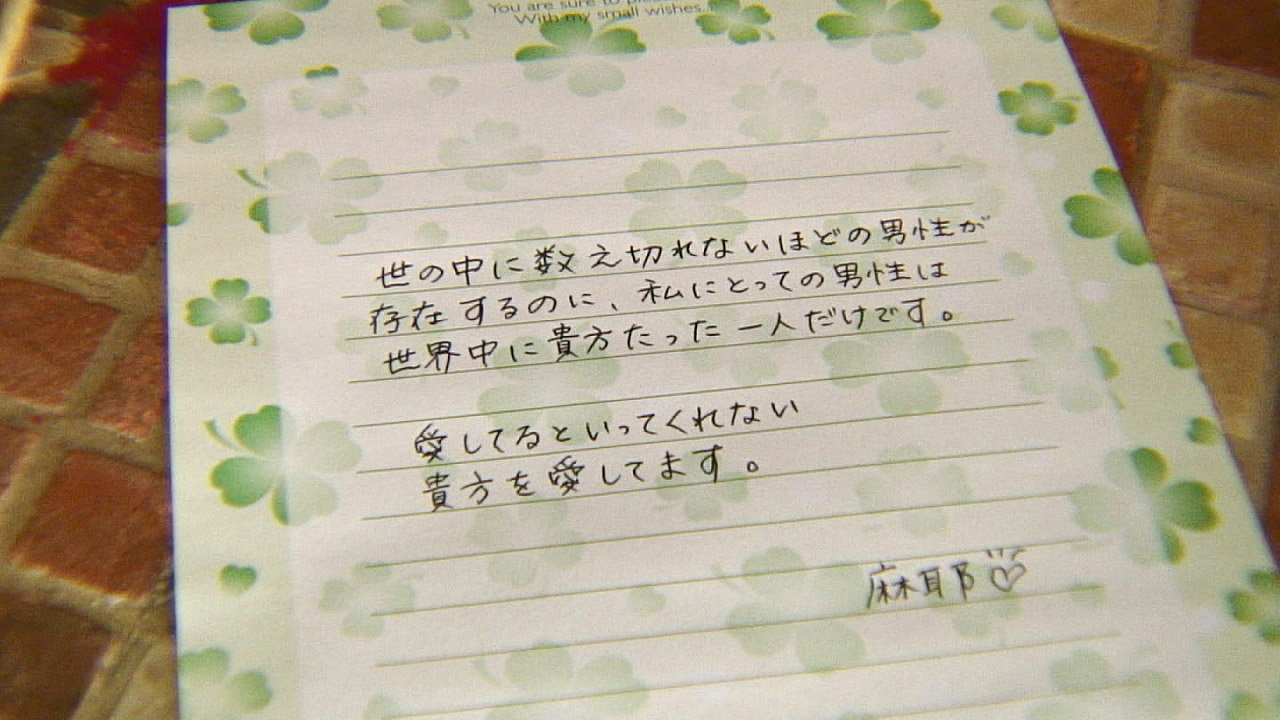 You are sure to
With my small wishes..
世の中に数え切れないほどの男性が
存在するのに、私にとっての男性は
世界中に貴方たった一人だけです。
愛してるといってくれない
貴方を愛してます。
麻耶♡